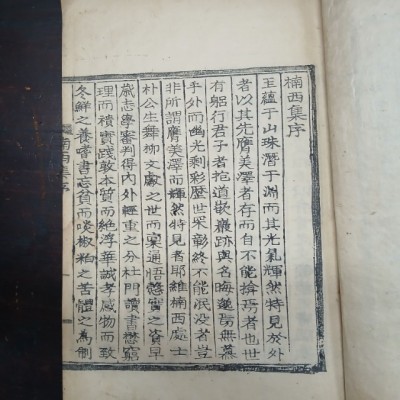 楠西集序
玉蘊于山珠潛于淵而其光氣輝然特見於外
者以其先膺美澤者存而自不能揜焉者也世
有躬行君子者抱嶔巖跡與名晦邈焉無蕉
乎外而幽光剩彩歷世罙彰終不能泯没者豈
非所謂膺美澤而輝然特見者耶維楠西處士
朴公生舞柳文獻之世而稟通悟慤實之資早
歲志學審判得內外輕重之分杜門讀書慤窮
理而積實踐敦本質而絶浮華誠孝感物而致
冬鮮之養耆書忘貧而啖椒粕之苦體之為剛
楠西集序